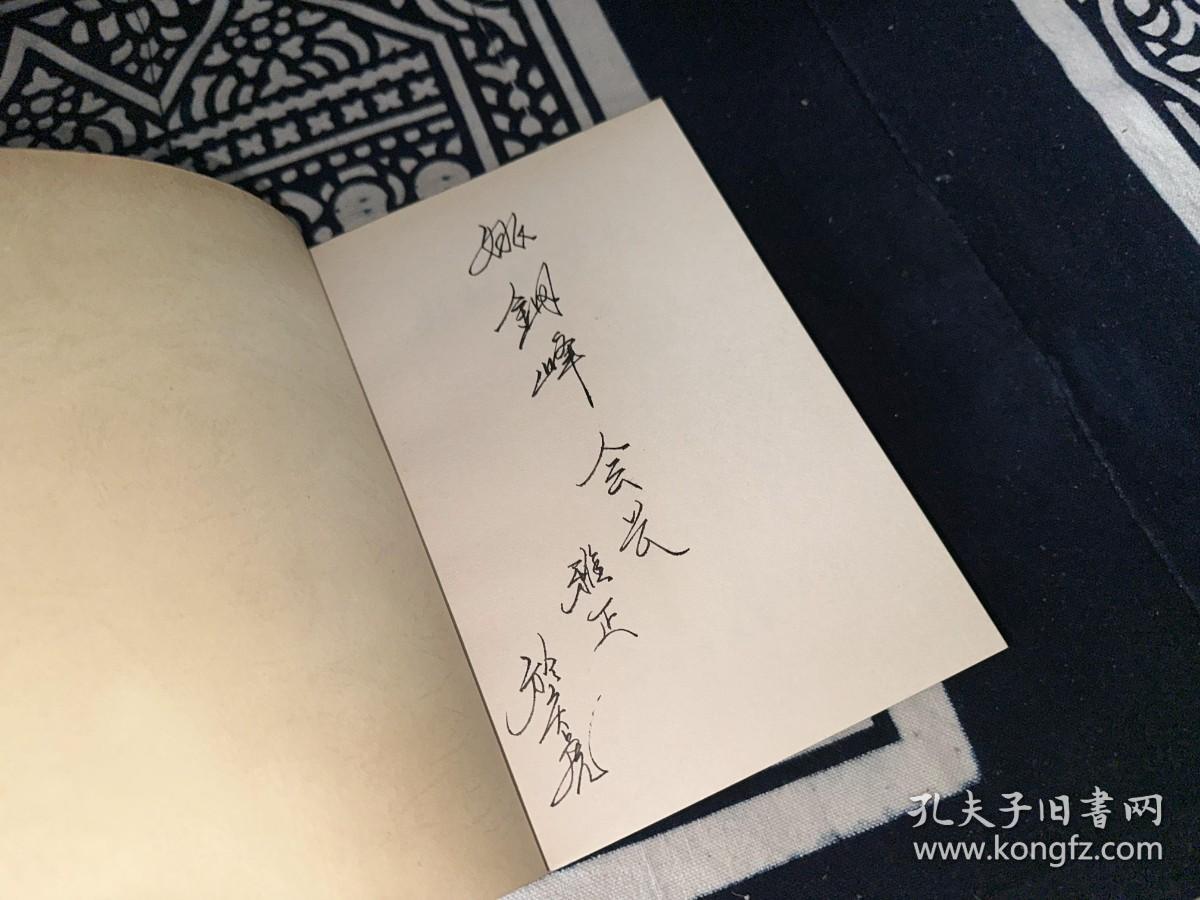 姚钢峰
会长
雅正
孔夫子旧書网
www.kongfz.com